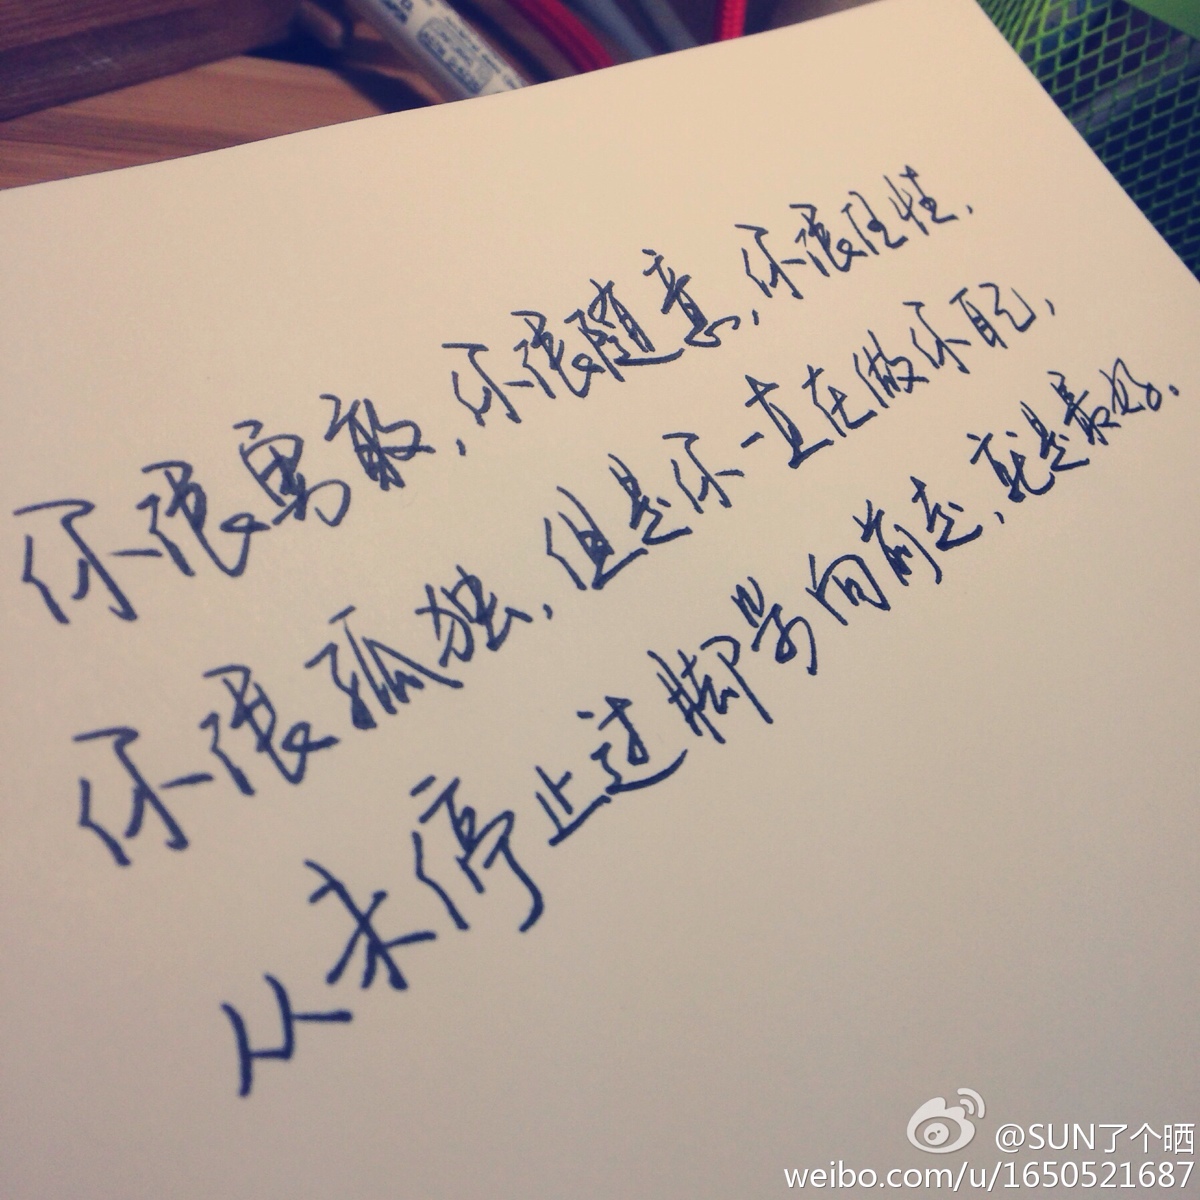 你很勇敢,你很随意,你很任性,
你很孤独,但是你一直在做你自己,
从未停止过脚步向前走,就是最好。
@SUN了个晒
weibo.com/u/1650521687